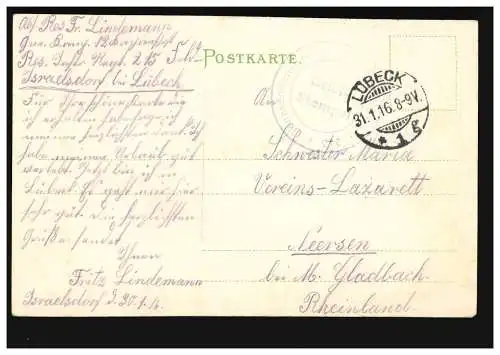 Abs. Res. Fr. Lindemann
Res. Inftr. Regt. 215
Israelsdorf bei Lübeck
POSTKARTE.
Für Ihre schöne Karte
erhalten
meinen herzlichsten Dank. Ich
habe meinen Urlaub gut
verlebt. Jetzt bin ich in
Lübeck. Es geht mir hier
sehr gut. Die herzlichsten
Grüße sendet
Ihnen
Fritz Lindemann
Israelsdorf d. 30.1.16.
LÜBECK
31.1.16.8-9V.
* 1 g
An
Schwester Maria
Vereins-Lazarett
Neersen
bei M. Gladbach
Rheinland.